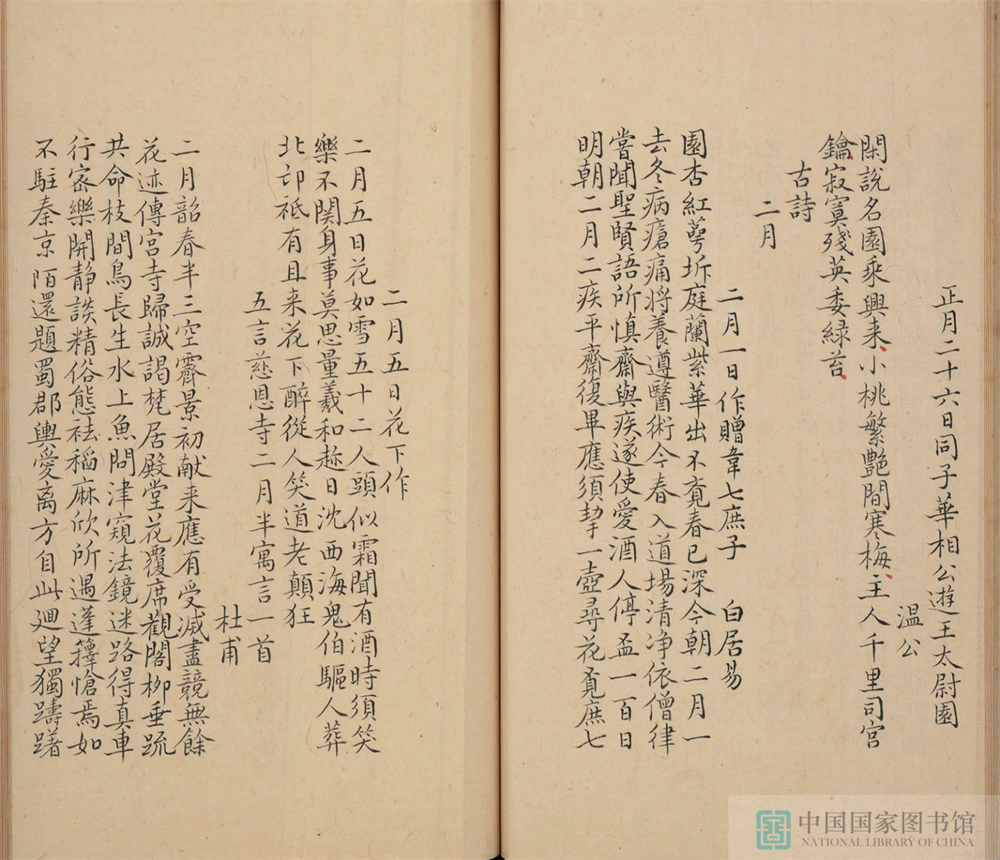 正月二十六日同子華相公遊王太尉園
温公
閑説名園乘興来小桃繁艷間寒梅主人千里司宫
鑰寂寞殘英委緑苔
古詩
二月
二月一日作贈韋七庶子 白居易
園杏紅萼坼庭蘭紫華出不覔春已深今朝二月一
去冬病瘡痛將養遵醫術今春入道場清净依僧律
嘗聞聖賢語所慎齋與疾遂使愛酒人停盃一百日
明朝二月二疾平齋復畢應須挈一壺尋花覔庶七
二月五日花下作
二月五日花如雪五十二人頭似霜聞有酒時須笑
樂不関身事莫思量羲和趂日沈西海鬼伯驅人葬
北邙祗有且来花下醉從人笑道老顛狂
五言慈恩寺二月半寓言一首
杜甫
二月韶春半三空霽景初献来應有受滅盡競無餘
花迹傳宫寺歸誠謁梵居殿堂花覆席觀閣栁垂疏
共命枝間鳥長生水上魚問津窺法鏡迷路得真車
行密樂開静談精俗態祛稻麻欣所遇蓬籜愴焉如
不駐秦京陌還題蜀郡輿愛离方自此廻望獨躊躇
中国国家图书馆
NATIONAL LIBRARY OF CHINA